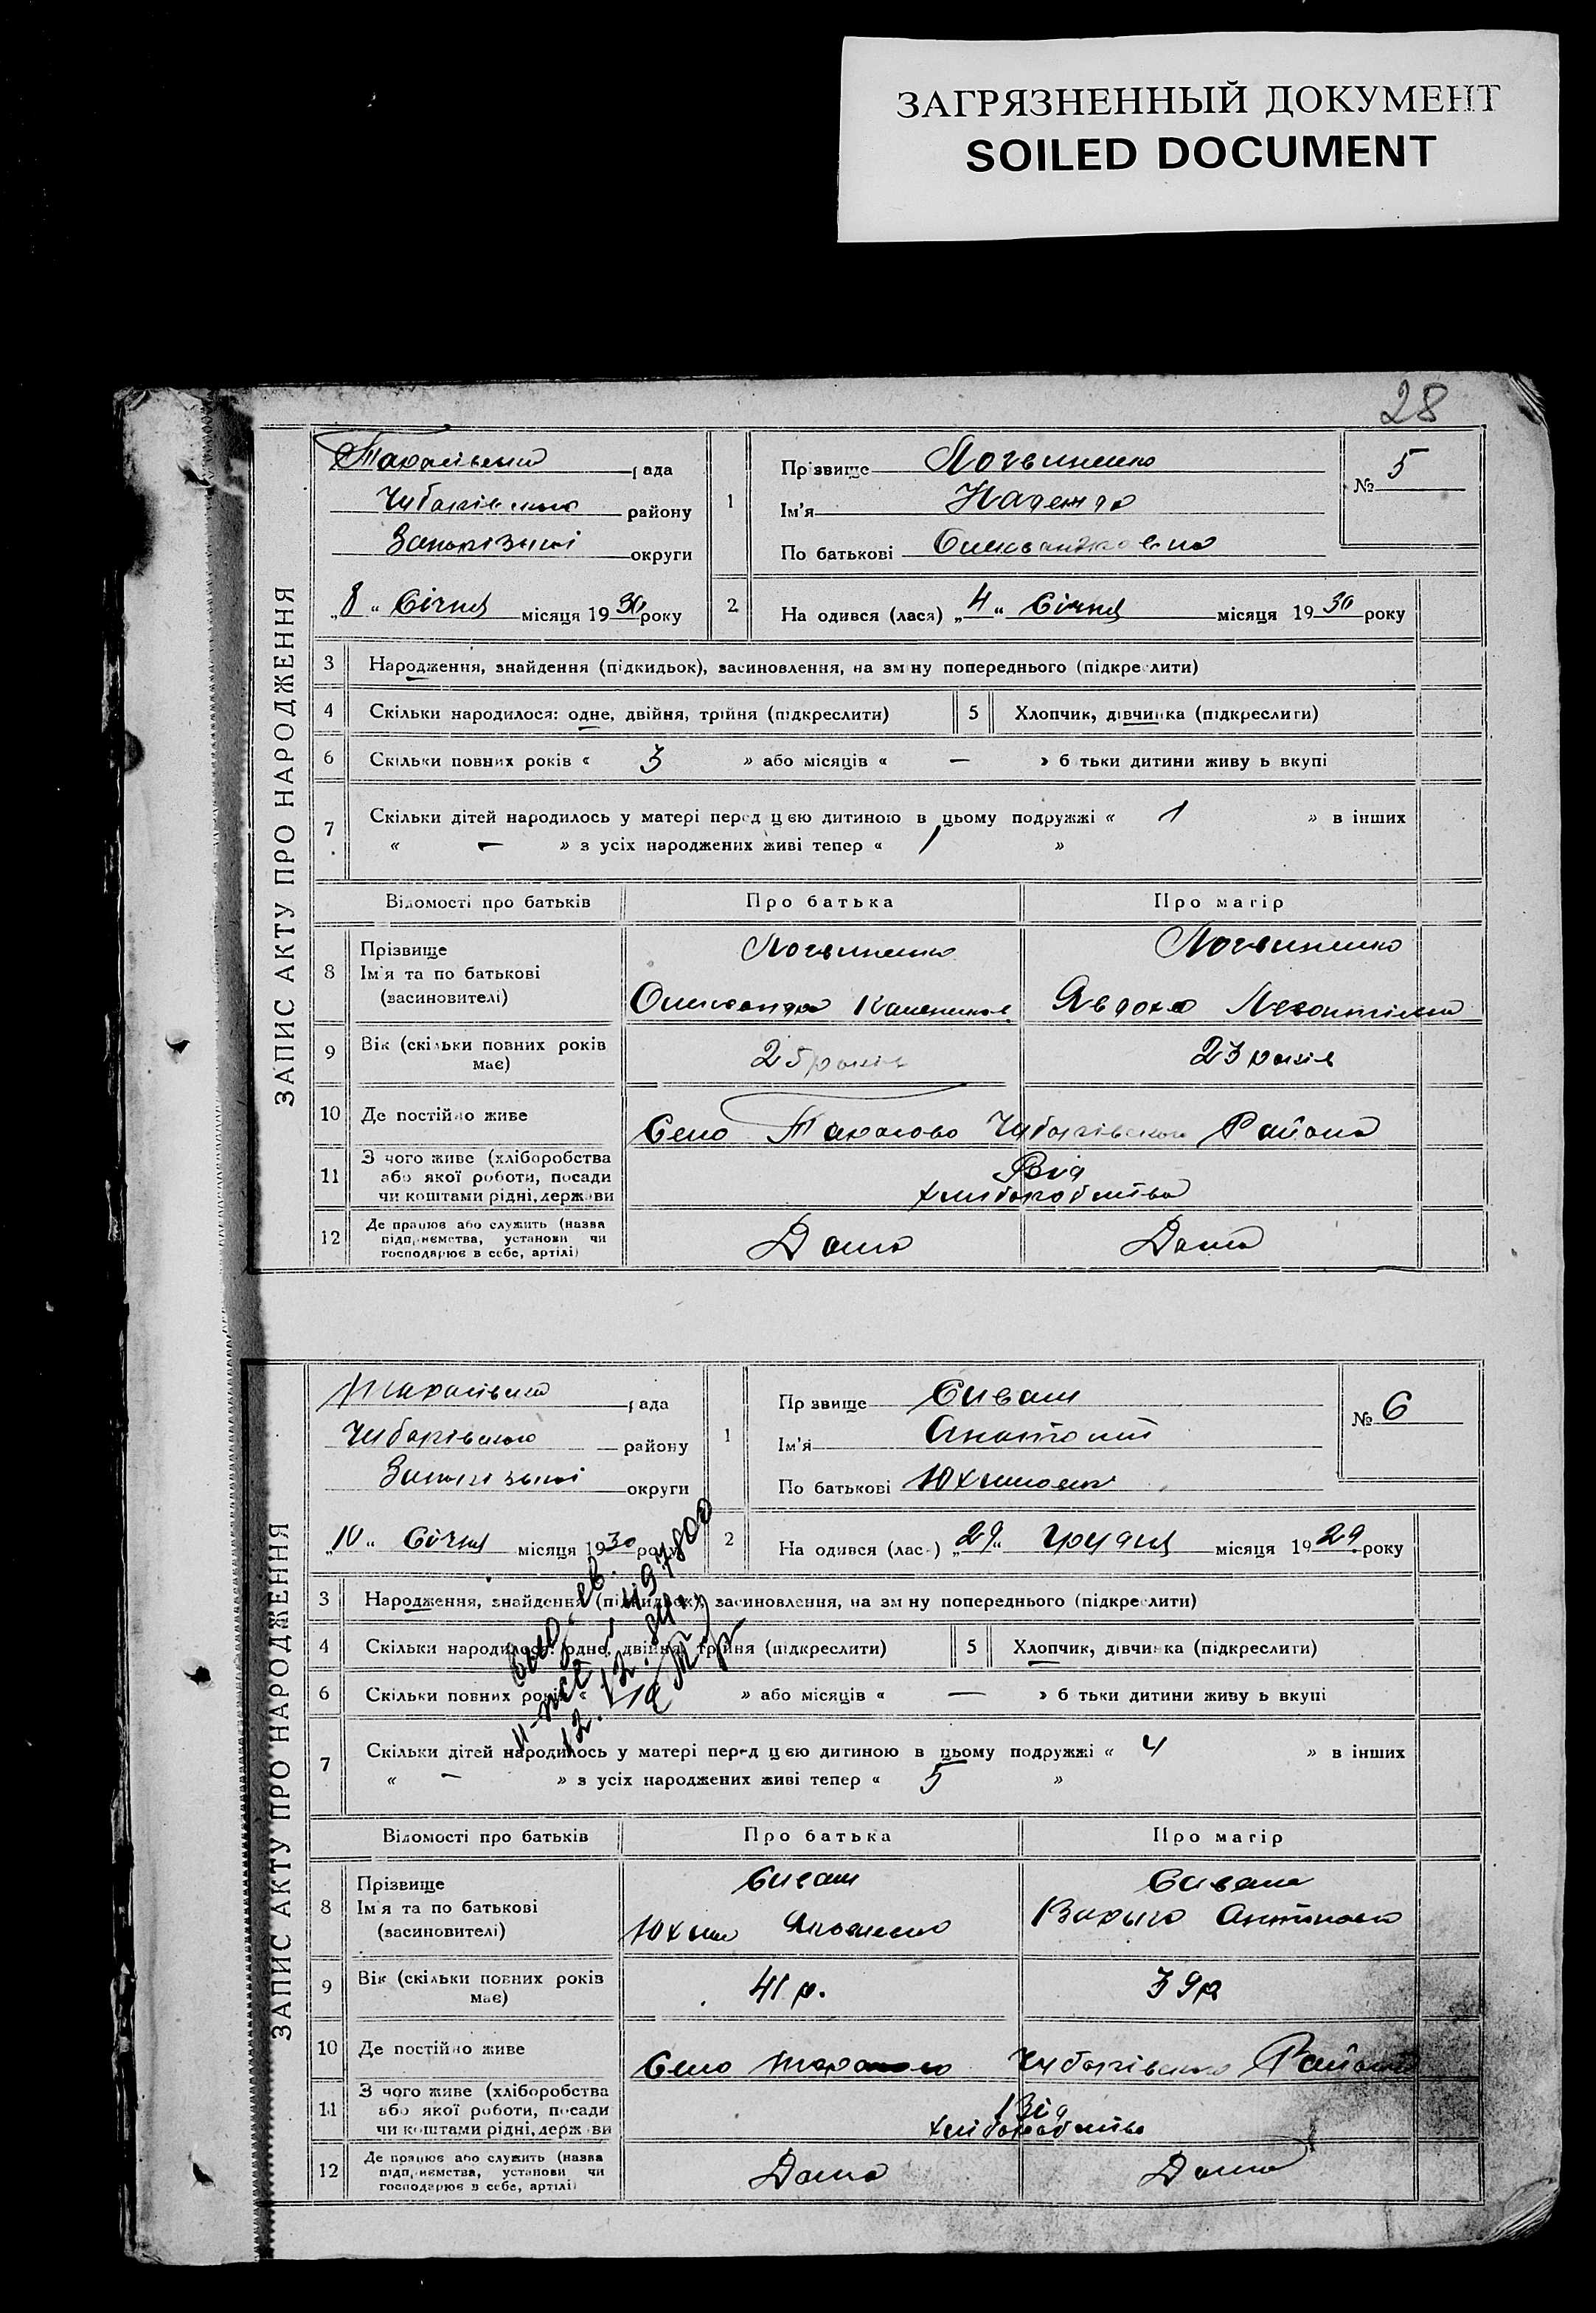 ЗАГРЯЗНЕННЫЙ ДОКУМЕНТ
SOILED DOCUMENT
28
ЗАПИС АКТУ ПРО НАРОДЖЕННЯ
Тарасівська рада
Чубарівського району
Запорізької округи
„8“ Січня місяця 1930 року
1
Прізвище Логвиненко
Ім'я Надежда
По батькові Олександровна
№ 5
2 На одився (лася) „4“ Січня місяця 1930 року
3 Народження, знайдення (підкидьок), засиновлення, на зміну попереднього (підкреслити)
4 Скільки народилося: одне, двійня, трійня (підкреслити) 5 Хлопчик, дівчинка (підкреслити)
6 Скільки повних років « 3 » або місяців « — » б тьки дитини живу ь вкупі
7 Скільки дітей народилось у матері перед цією дитиною в цьому подружжі « 1 » в інших
« — » з усіх народжених живі тепер « 1 »
Відомості про батьків Про батька Про матір
8 Прізвище Логвиненко Логвиненко
Ім'я та по батькові
(засиновителі) Олександр Явдоха
9 Вік (скільки повних років має) 25 років 23 років
10 Де постійно живе Село Тарасово Чубарівського Района
11 З чого живе (хліборобства або якої роботи, посади чи коштами рідні, держави Від хліборобства
12 Де працює або служить (назва підприємства, установи чи господарює в себе, артілі) Дома Дома
ЗАПИС АКТУ ПРО НАРОДЖЕННЯ
Тарасівська рада
Чубарівського району
Запорізької округи
„10“ Січня місяця 1930 року
1
Пр звище Сиваш
Ім'я Анатолій
По батькові Юхимович
№ 6
2 На одився (лас ) „29“ Грудня місяця 1929 року
3 Народження, знайдення (підкидьок), засиновлення, на зм ну попереднього (підкреслити)
4 Скільки народилося: одне, двійня, трійня (підкреслити) 5 Хлопчик, дівчинка (підкреслити)
6 Скільки повних років « » або місяців « — » б тьки дитини живу ь вкупі
7 Скільки дітей народилось у матері перед цією дитиною в цьому подружжі « 4 » в інших
« — » з усіх народжених живі тепер « 5 »
Відомості про батьків Про батька Про матір
8 Прізвище Сиваш Сиваш
Ім'я та по батькові
(засиновителі) Юхим
9 Вік (скільки повних років має) 41 р. 39 р
10 Де постійно живе Село Чубарівського Района
11 З чого живе (хліборобства або якої роботи, посади чи коштами рідні, держави Від хліборобства
12 Де працює або служить (назва підприємства, установи чи господарює в себе, артілі) Дома Дома